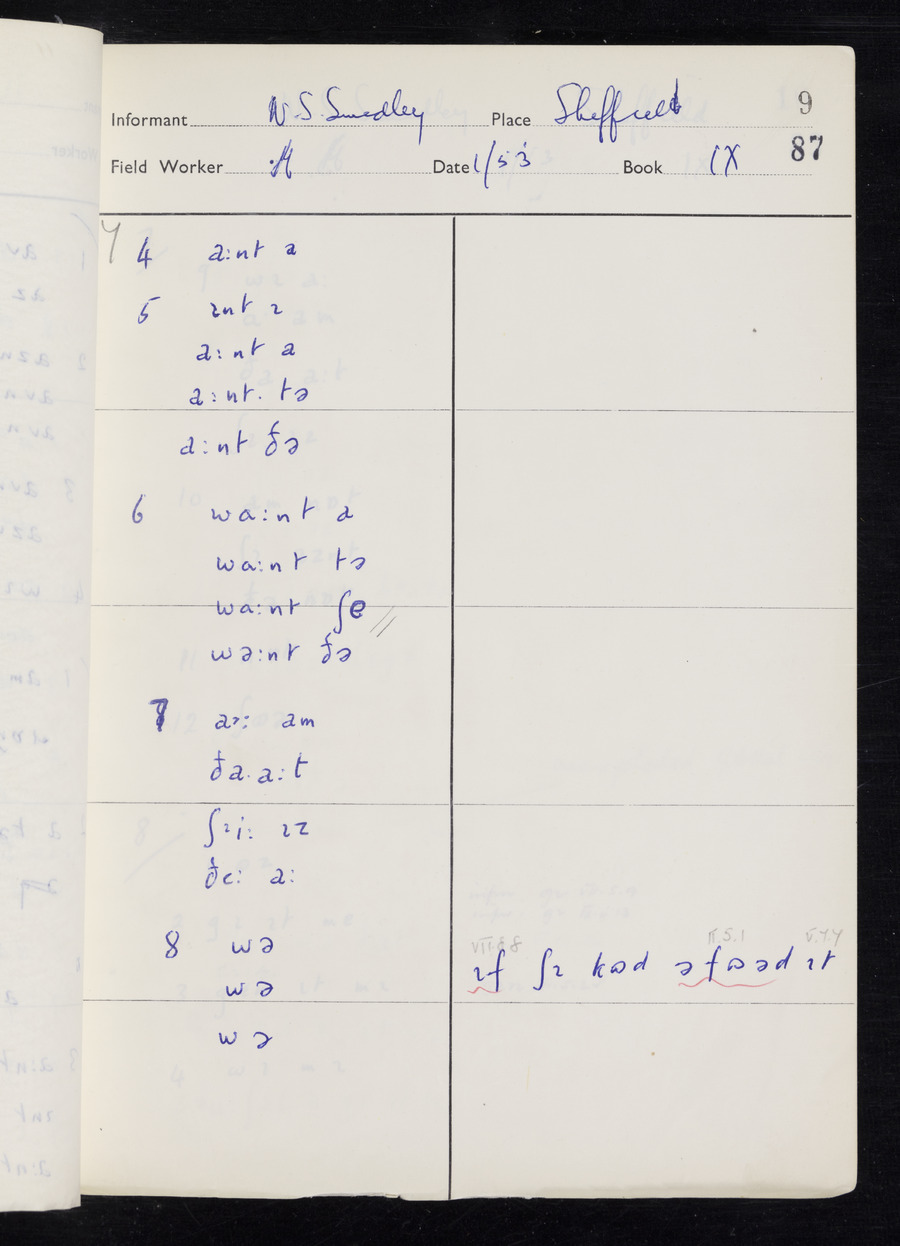 9
Informant W. S. Smedley Place Sheffield
87
Field Worker Date 1/53 Book IX
7 4 a:nt a
5 ɪnt ɪ
a:nt a
a:nt. tə
a:nt ðə
6 wa:nt a
wa:nt tə
wa:nt ʃe //
wə:nt ðə
7 aɪ: am
ða. a:t
ʃɪi: ɪz
ðe: a:
8 wə
wə
wə
VII.8.8 II.5.1 V.7.7
ɪf ʃɪ kɷd əfɷəd ɪt